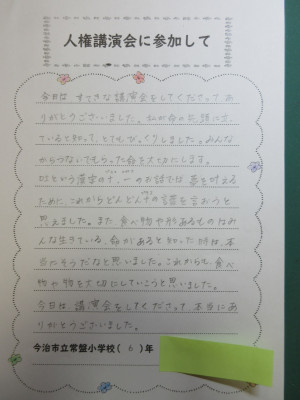 人権講演会に参加して
今日は、すてきな講演会をしてくださって、あ
りがとうございました。私が命の
ていると知って、とてもびっくりしました。みんな
からつないでもらった命を大切にします。
という漢字の十、一のお話では、夢を叶える
ために、これからどんどん十の言葉を言おうと
思えました。また、食べ物や形あるものはみ
んな生きている、命があると知った時は、本
当にそうだなと思いました。これからも、食べ
物や物を大切にしていこうと思いました。
今日は、講演会をしてくださって、本当にあ
りがとうございました。
今治市立常盤小学校(6)年